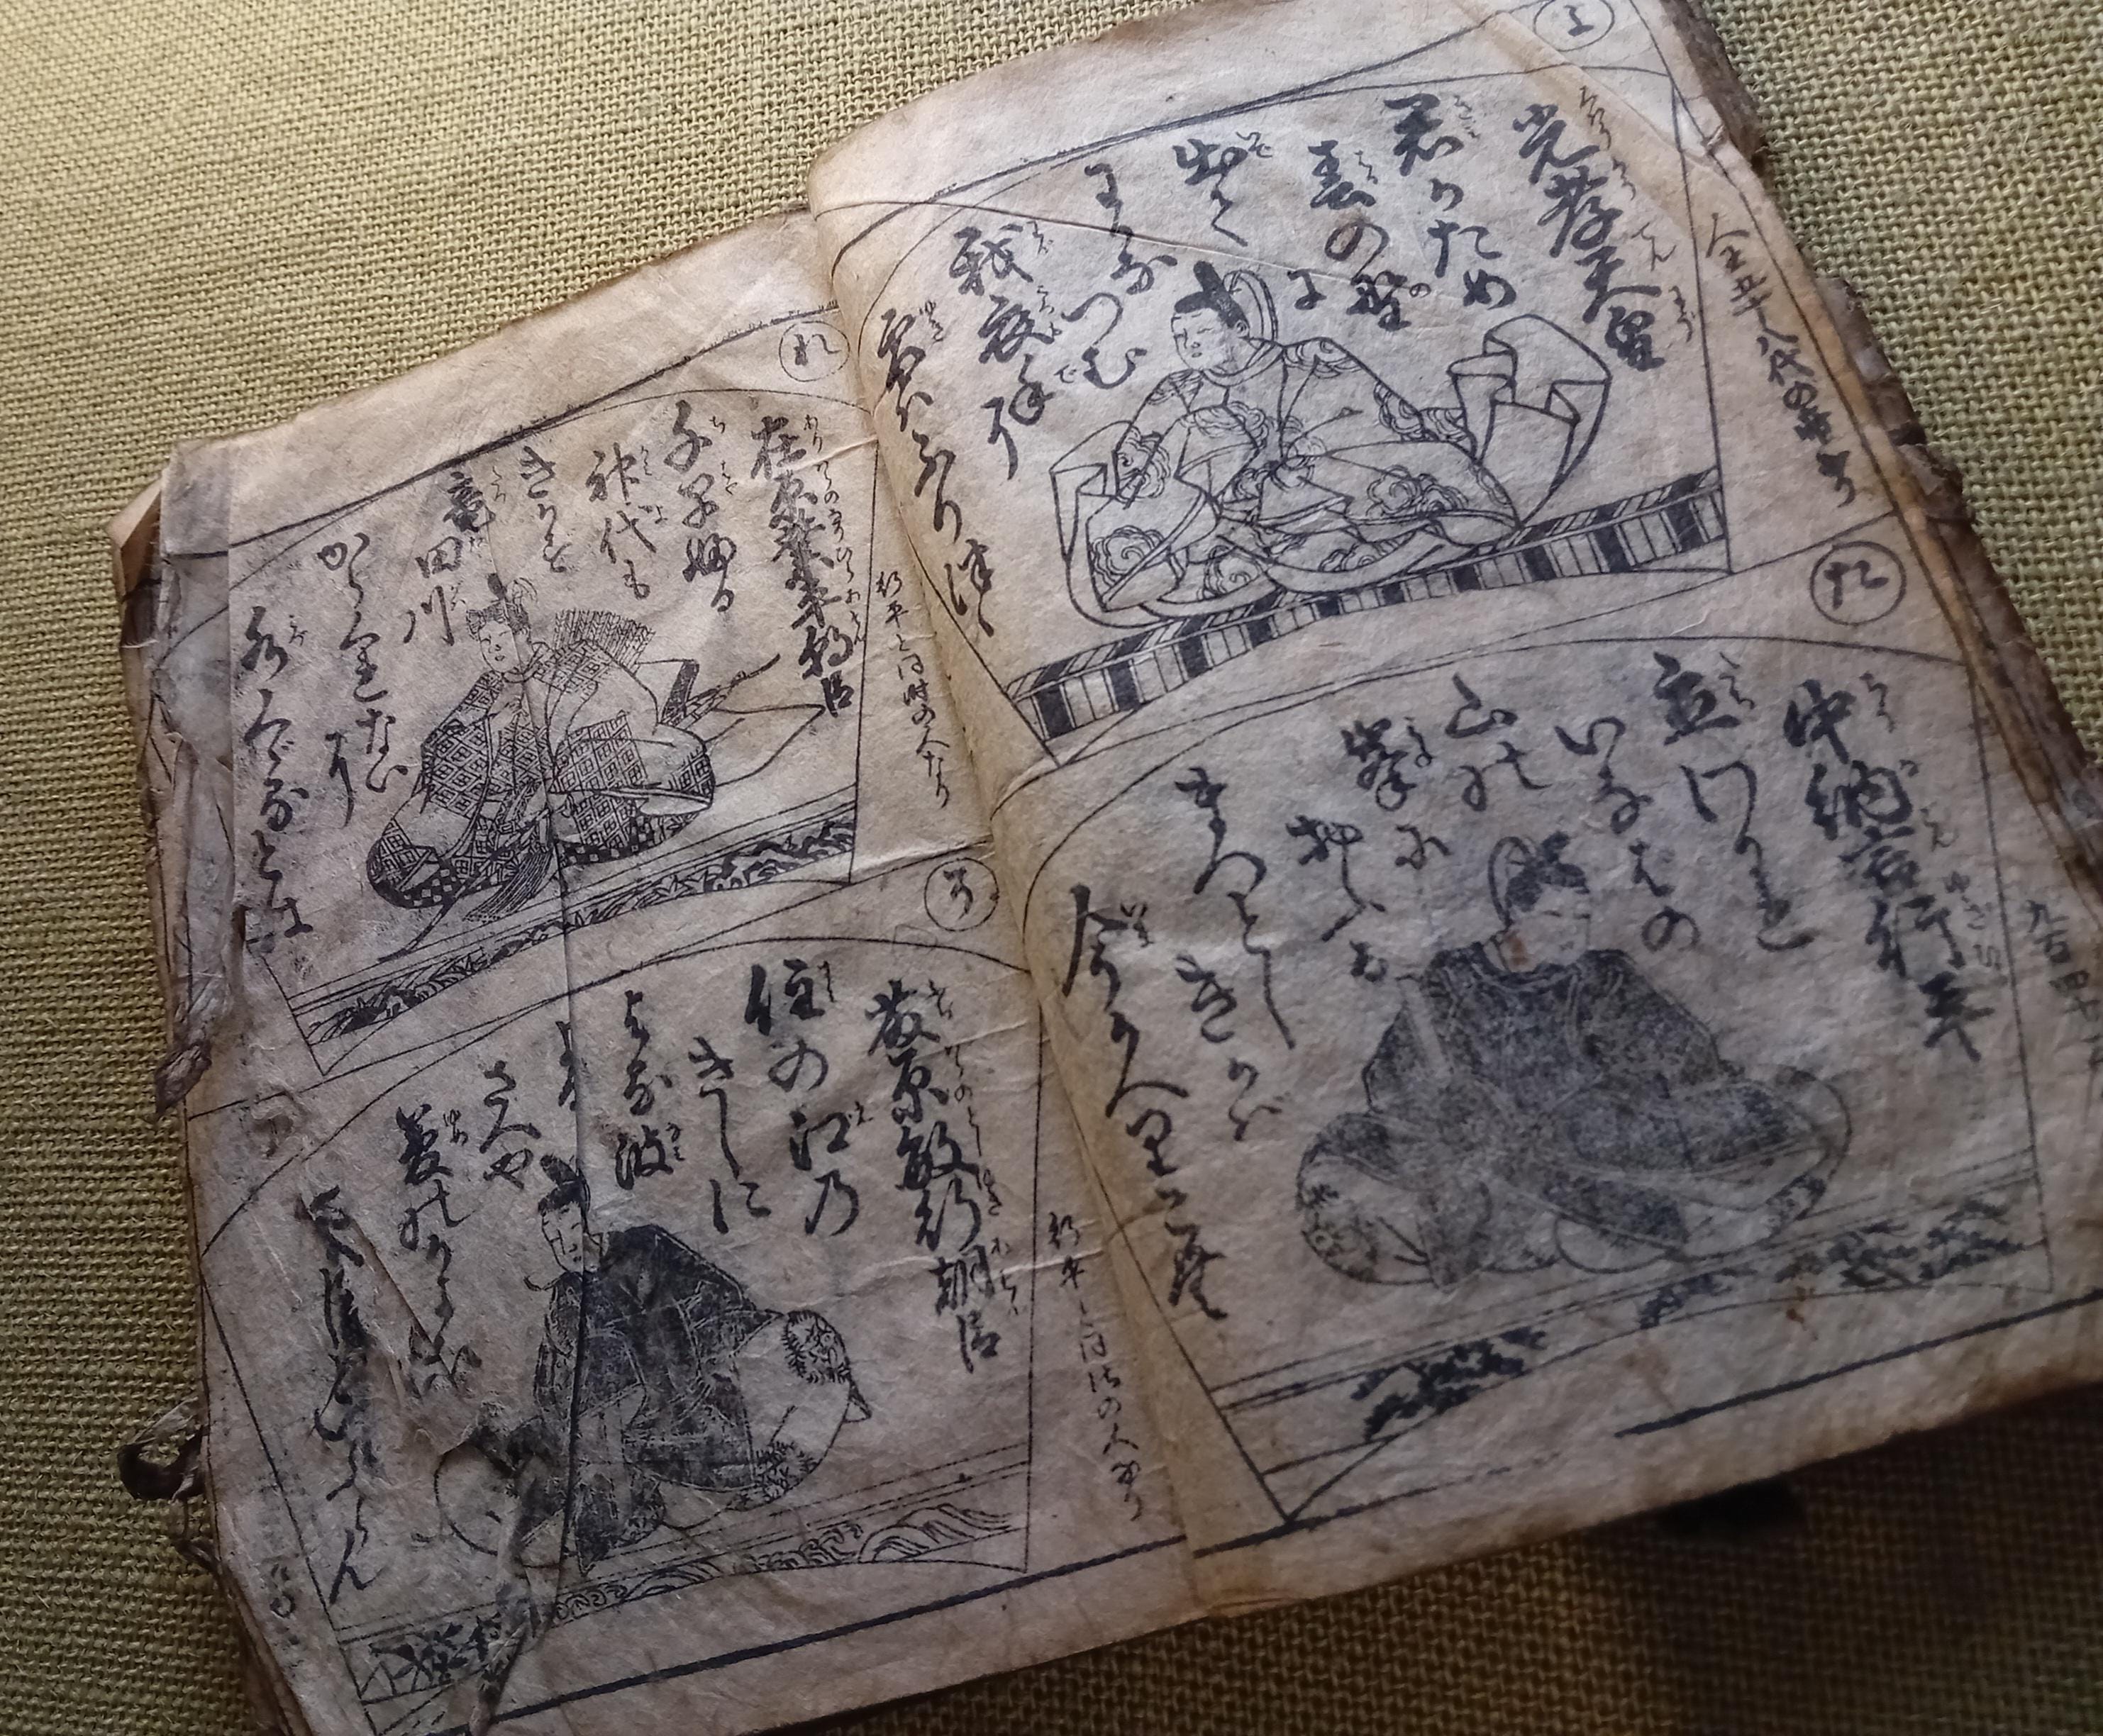 よ
人王五十八代の帝なり
光孝天皇
君かため
春の野に
出て
わかなつむ
我衣手に
雪はふりつゝ
た
中納言行平
立わかれ
いなはの
山の
峯に
おふる
まつとし
きかば
今かへりこむ
れ
行平と同時の人なり
在原業平朝臣
千早振る
神代も
きかず
竜田川
からくれなゐに
水くゝるとは
そ
行平と同時の人なり
藤原敏行朝臣
住の江乃
きしに
よる波
よる
さへや
夢のかよひ
人目よくらん